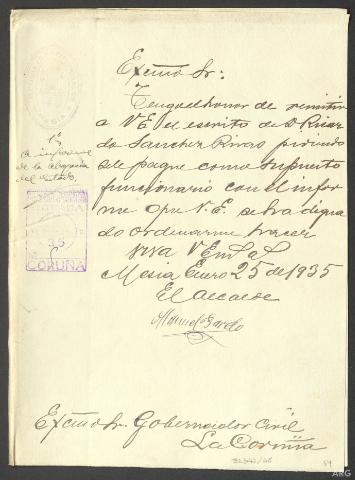 Excmo Sr:
Tengo el honor de remitir
a V.E. el escrito de D. Ricar
do Sanchez Rivas pidiendo
se le pague como supuesto
funcionario con el infor
me que V.E. se ha digna
do ordenarme hacer
Viva V.E. m. a.
Mesia Enero 25 de 1935
El Alcalde
Manuel Pardo
Excmo Sr. Gobernador Civil
La Coruña
1º
A informe
de la Abogacía
del Estado
35
CORUÑA
54
ARG